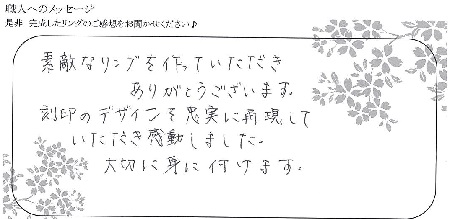 職人へのメッセージ
是非 完成したリングのご感想をお聞かせください♪
素敵なリングを作っていただき
ありがとうございます。
刻印のデザインを忠実に再現して
いただき感動しました。
大切に身に付けます。